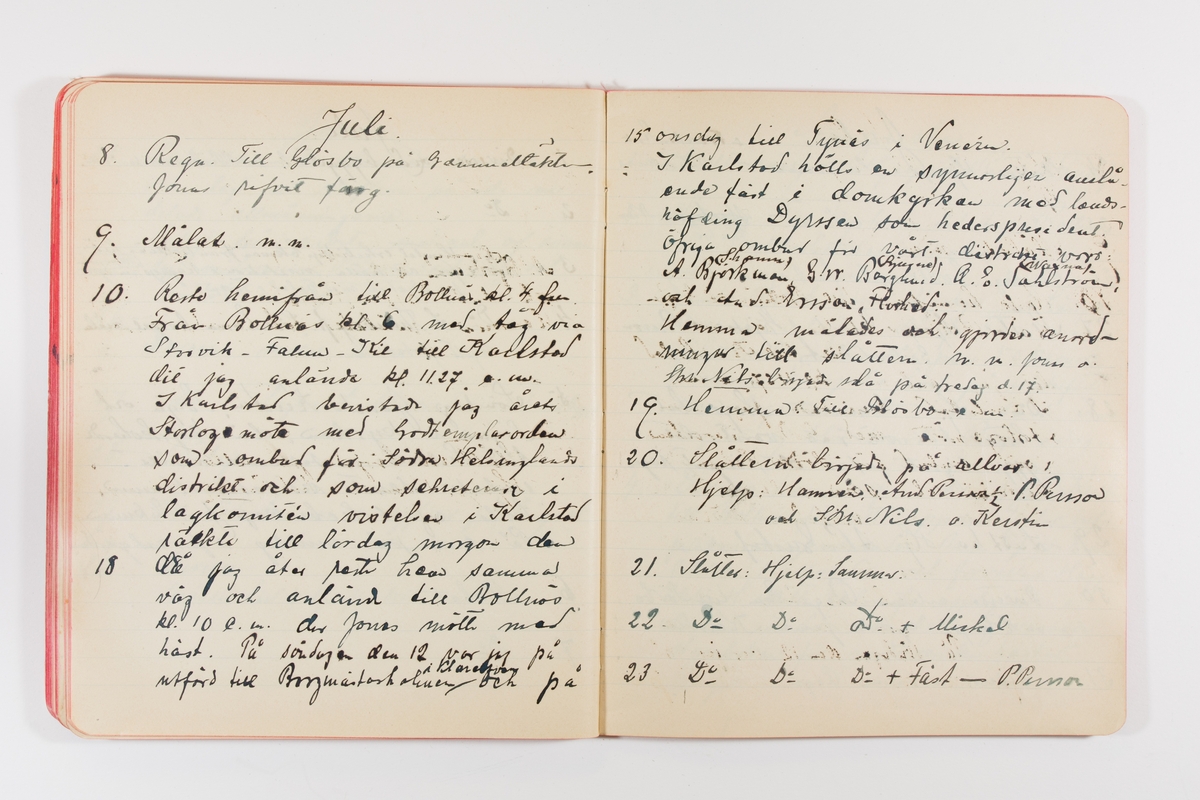 Juli.
8. Regn. Till Glösbo på Gammeltäkten.
Jonas rifvit färg.
9. Målat m. m.
10. Reste hemifrån till Bollnäs kl. 4 fm
Från Bollnäs kl. 6 med tåg via
Storvik - Falun - Kil till Karlstad
dit jag anlände kl. 11.27 e. m.
I Karlstad bevistade jag årets
Storloge möte med Godtemplarorden
som ombud för Södra Helsinglands
distrikt och som sekreterare i
lagkomitén vistelsen i Karlstad
räckte till lördag morgon den
18 då jag åter reste hem samma
väg och anlände till Bollnäs
kl. 10 e. m. der Jonas mötte med
häst. På söndagen den 12 var jag på
utfärd till Borgmästarholmen i Klarelfven och på
15 onsdag till Tynäs i Venern.
I Karlstad hölls en synnerligen anslå-
ende fäst i domkyrkan med lands-
höfding Dyrssen som hederspresident
öfriga ombud för vårt distrikt voro
A. Björkman, G. W. Berglund, A. E. Sahlström,
och And. Ersson,
Hemma målades och gjordes anord-
ningar till slåttern m. m. Jonas o.
Nils började slå på fredag d. 17
19. Hemma. Till Glösbo
20. Slåttern började på allvar
Hjelp: Hamrén, And. Persson, P. Persson
och Nils. o. Kerstin
21. Slåtter: Hjelp: Samma.
22. Do Do Do + Mickel
23 Do Do Do + Fäst — P. Persson